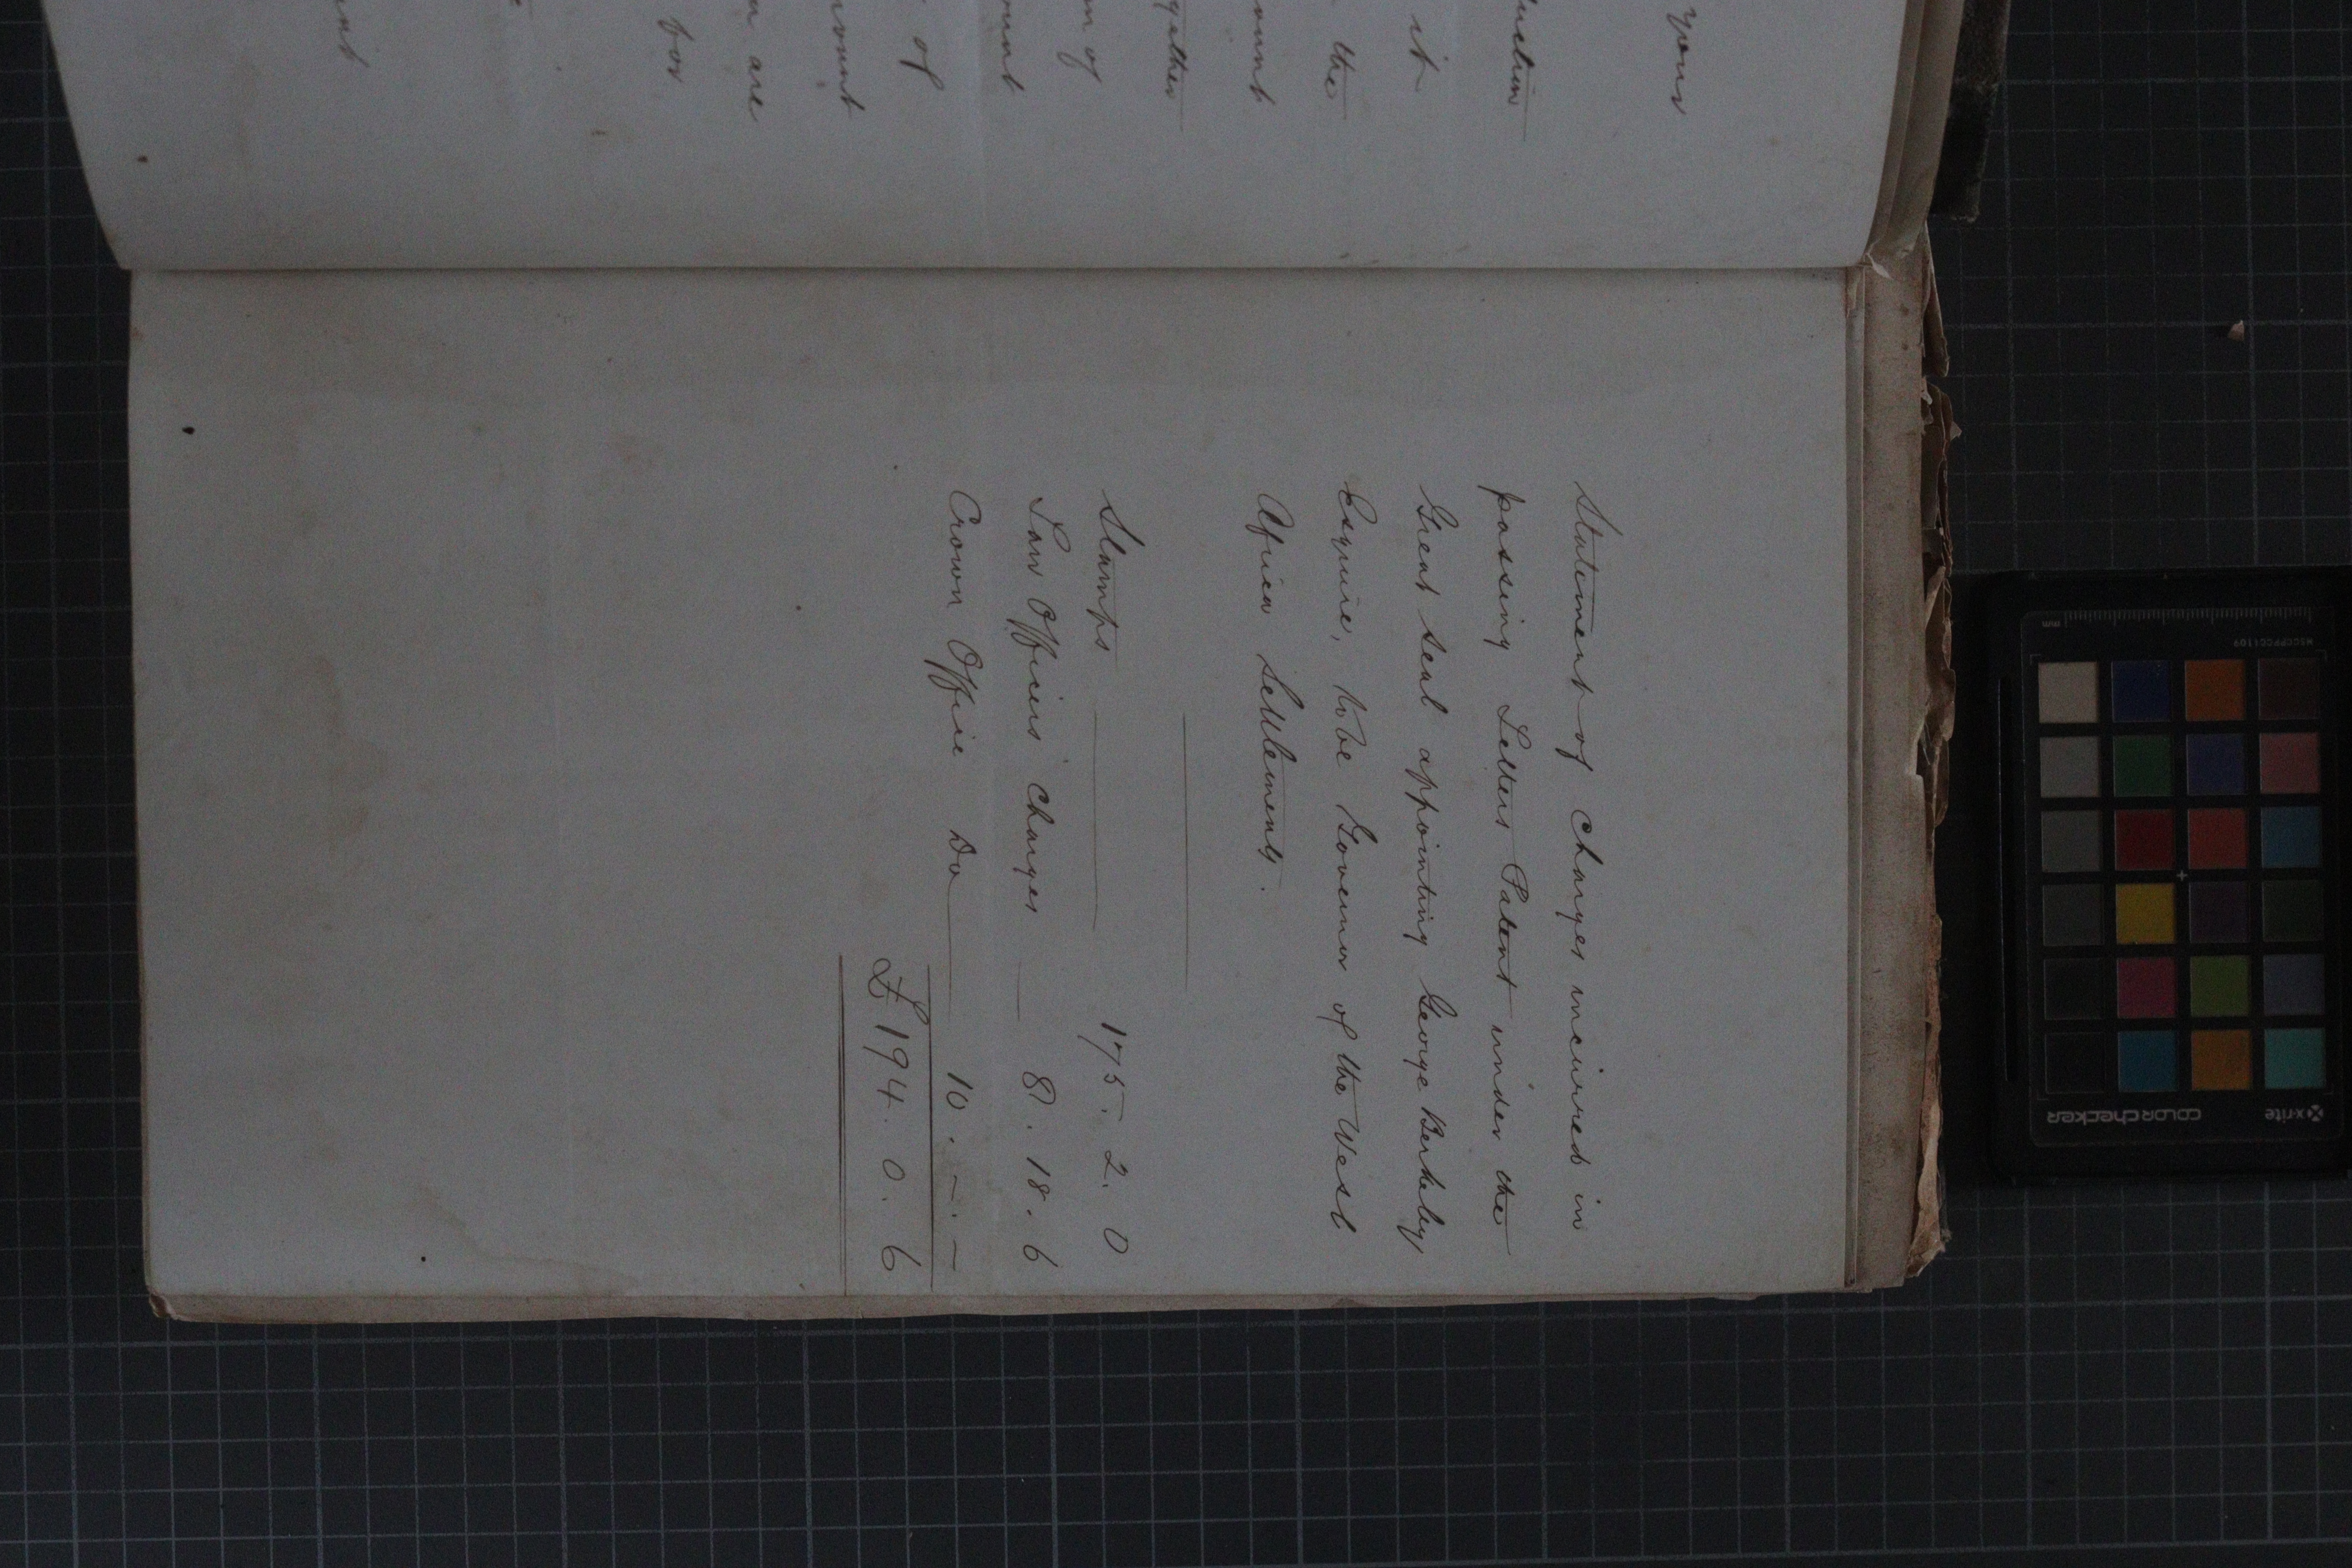 your
it
the
of
are
for
Statement of Charges incurred in
passing Letters Patent under the
Great Seal appointing George Berkeley
Esquire, to be Governor of the West
Africa Settlements.
Stamps 175. 2. 0
Law Officers Charges 8. 18. 6
Crown Office Do 10. – . –
£194. 0. 6
mm
MSCCPPCC1109
x-rite
colorchecker